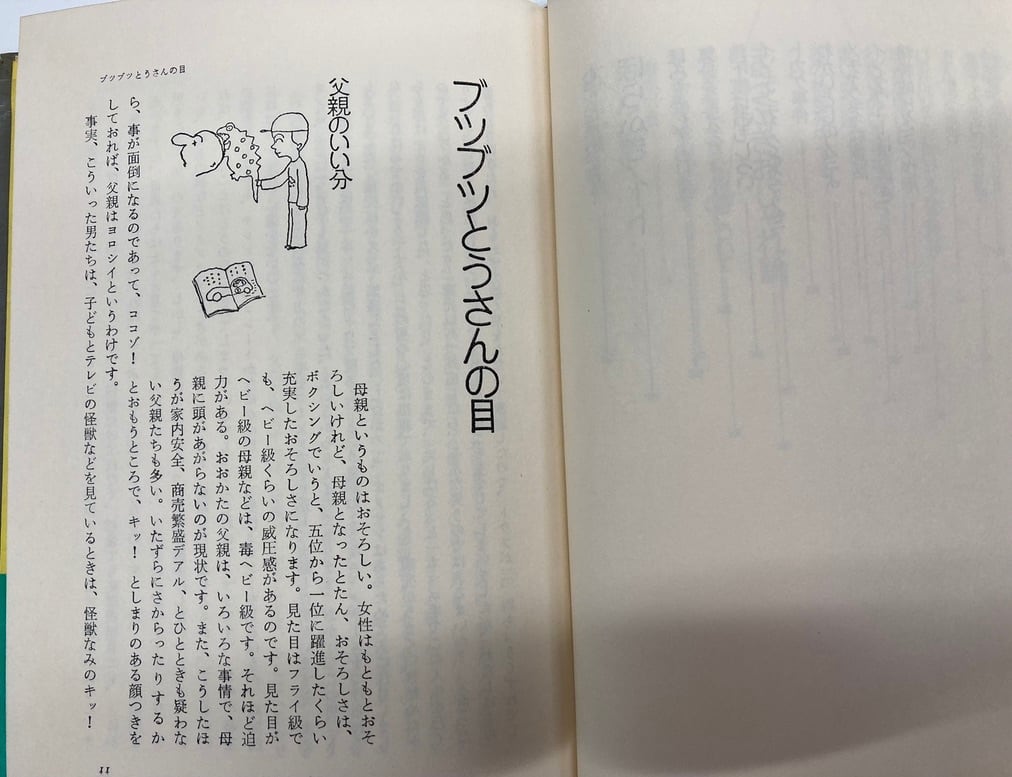 ブツブツとうさんの目
父親のいい分
母親というものはおそろしい。女性はもともとおそ
ろしいけれど、母親となったとたん、おそろしさは、
ボクシングでいうと、五位から一位に躍進したくらい
充実したおそろしさになります。見た目はフライ級で
も、ヘビー級くらいの威圧感があるのです。見た目が
ヘビー級の母親などは、毒ヘビー級です。それほど迫
力がある。おおかたの父親は、いろいろな事情で、母
親に頭があがらないのが現状です。また、こうしたほ
うが家内安全、商売繁盛デアル、とひとときも疑わな
い父親たちも多い。いたずらにさからったりするか
ら、事が面倒になるのであって、ココゾ！　とおもうところで、キッ！　としまりのある顔つきを
しておれば、父親はヨロシイというわけです。
事実、こういった男たちは、子どもとテレビの怪獣などを見ているときは、怪獣なみのキッ！
ブツブツとうさんの目
11